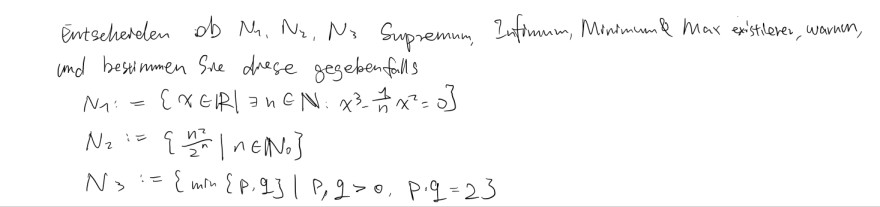 Entscheiden ob N₁, N₂, N₃ Supremum, Infimum, Minimum & Max existieren, warum,
und bestimmen Sie diese gegebenfalls
N₁ := {x ∈ ℝ | ∃ n ∈ ℕ: x³ - 1/n x² = 0}
N₂ := {n²/2ⁿ | n ∈ ℕ₀}
N₃ := {min {p, q} | p, q > 0, p·q = 2}